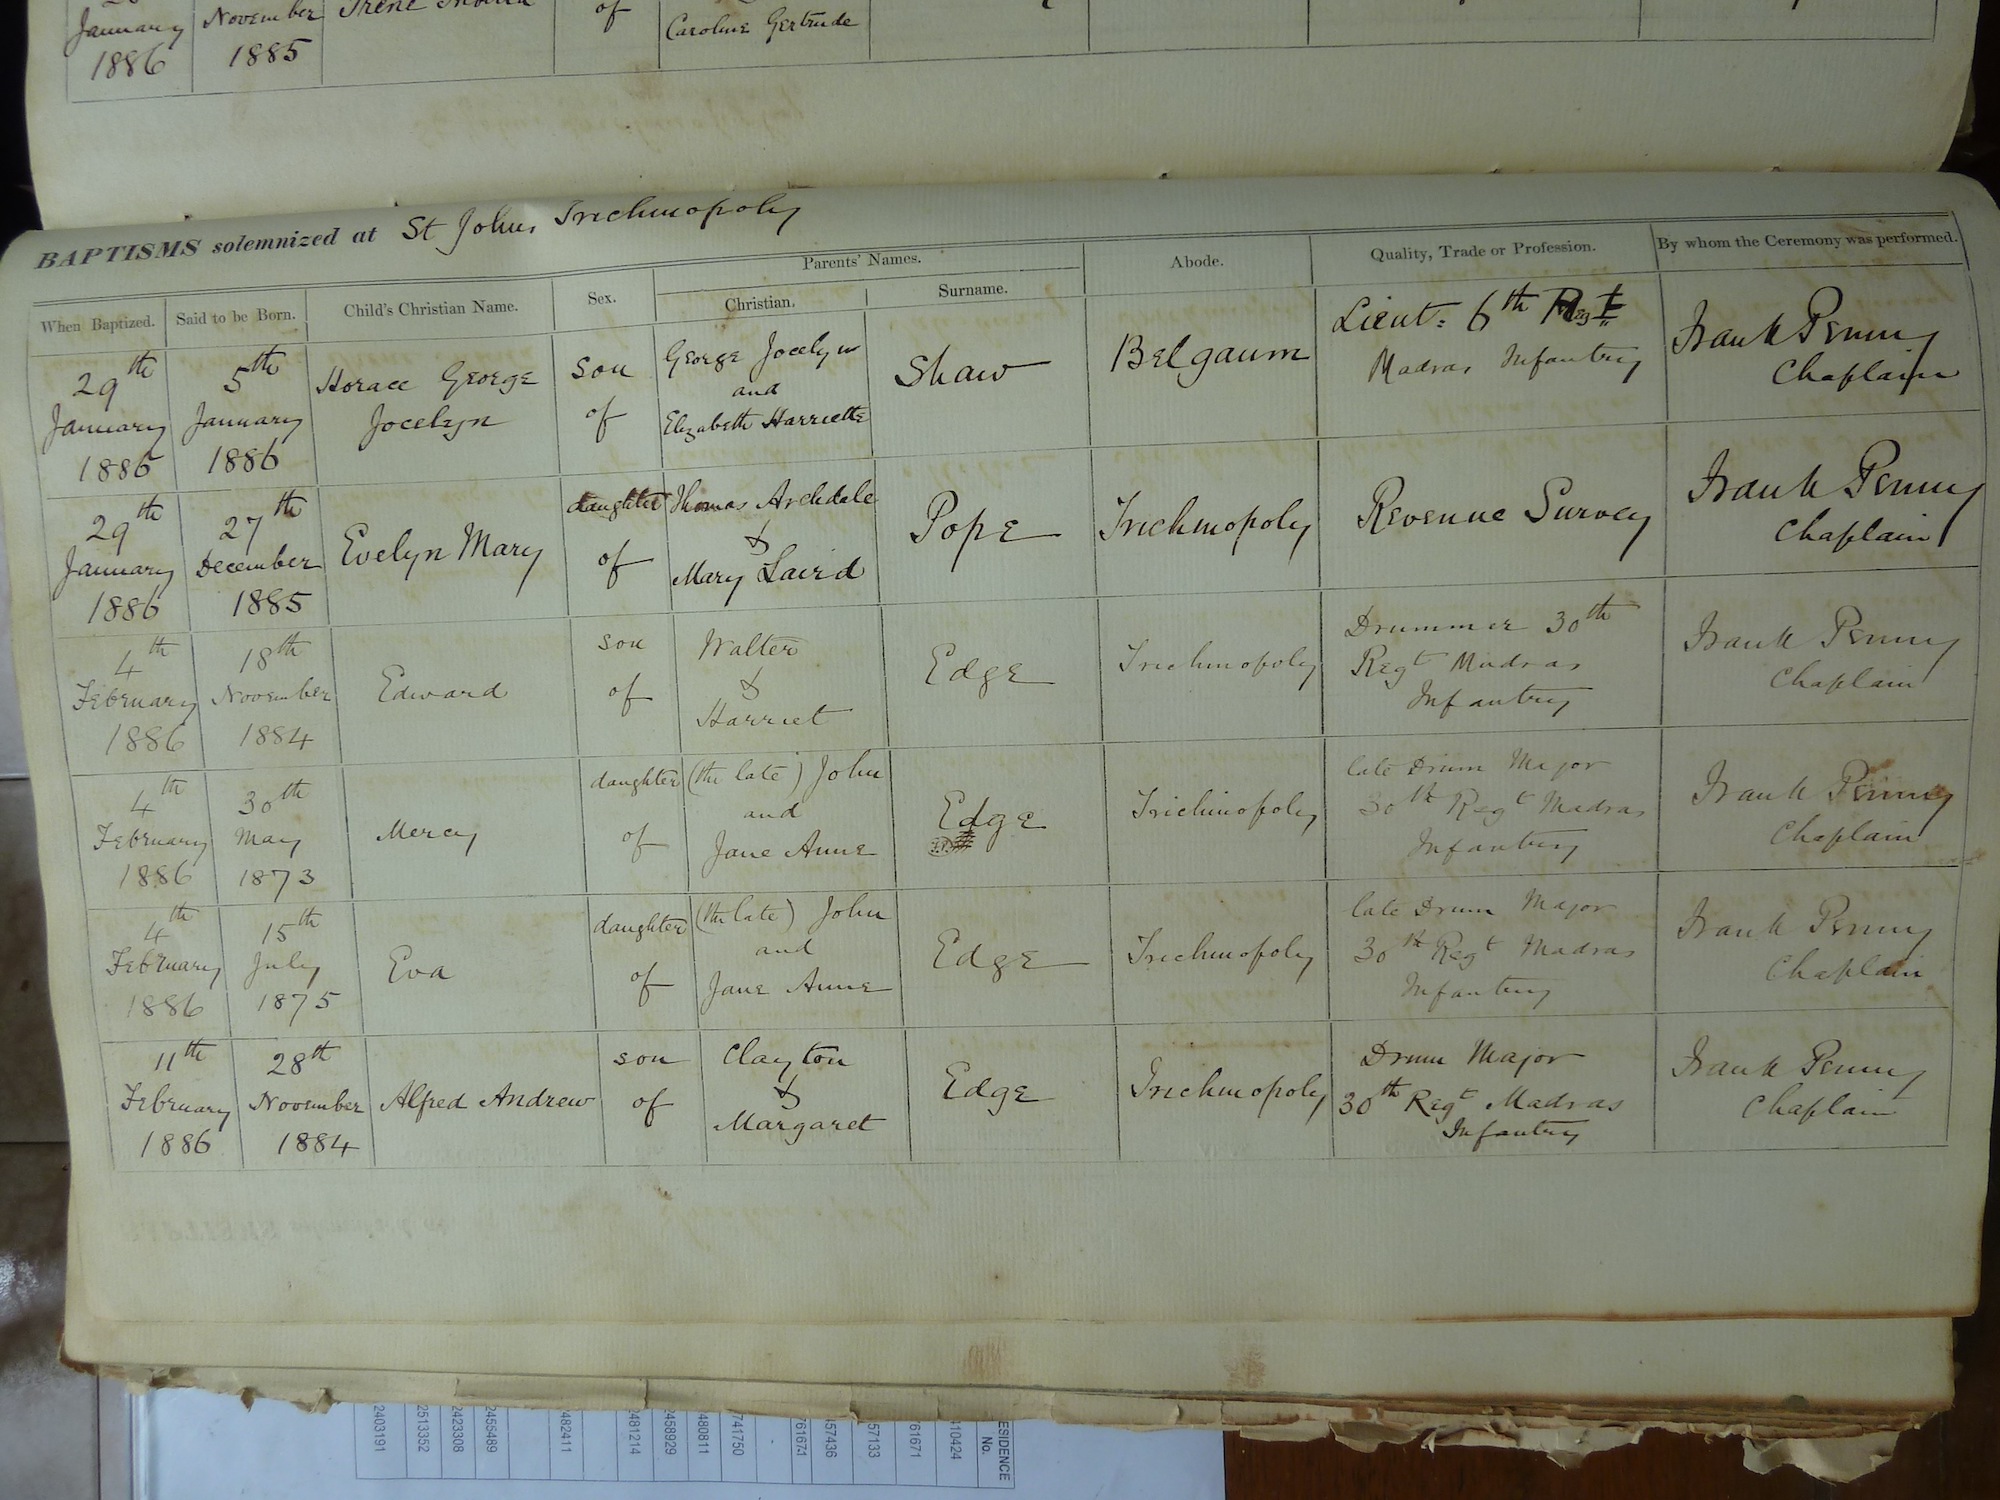 January
1886
November
1885
of
Caroline Gertrude
BAPTISMS solemnized at St Johns, Trichinopoly
When Baptized.
Said to be Born.
Child's Christian Name.
Sex.
Parents' Names.
Christian.
Surname.
Abode.
Quality, Trade or Profession.
By whom the Ceremony was performed.
29th
January
1886
5th
January
1886
Horace George
Jocelyn
son
of
George Jocelyn
and
Elizabeth Harriette
Shaw
Belgaum
Lieut: 6th Regt
Madras Infantry
Frank Penny
Chaplain
29th
January
1886
27th
December
1885
Evelyn Mary
daughter
of
Thomas Archdale
&
Mary Laird
Pope
Trichinopoly
Revenue Survey
Frank Penny
Chaplain
4th
February
1886
18th
November
1884
Edward
son
of
Walter
&
Harriet
Edge
Trichinopoly
Drummer 30th
Regt Madras
Infantry
Frank Penny
Chaplain
4th
February
1886
30th
May
1873
Mercy
daughter
of
(the late) John
and
Jane Anne
Edge
Trichinopoly
late Drum Major
30th Regt Madras
Infantry
Frank Penny
Chaplain
4th
February
1886
15th
July
1875
Eva
daughter
of
(the late) John
and
Jane Anne
Edge
Trichinopoly
late Drum Major
30th Regt Madras
Infantry
Frank Penny
Chaplain
11th
February
1886
28th
November
1884
Alfred Andrew
son
of
Clayton
&
Margaret
Edge
Trichinopoly
Drum Major
30th Regt Madras
Infantry
Frank Penny
Chaplain
ESIDENCE
No.
410424
61671
57133
457436
761671
741750
480811
458929
2481214
482411
2455489
2423308
2513352
2403191